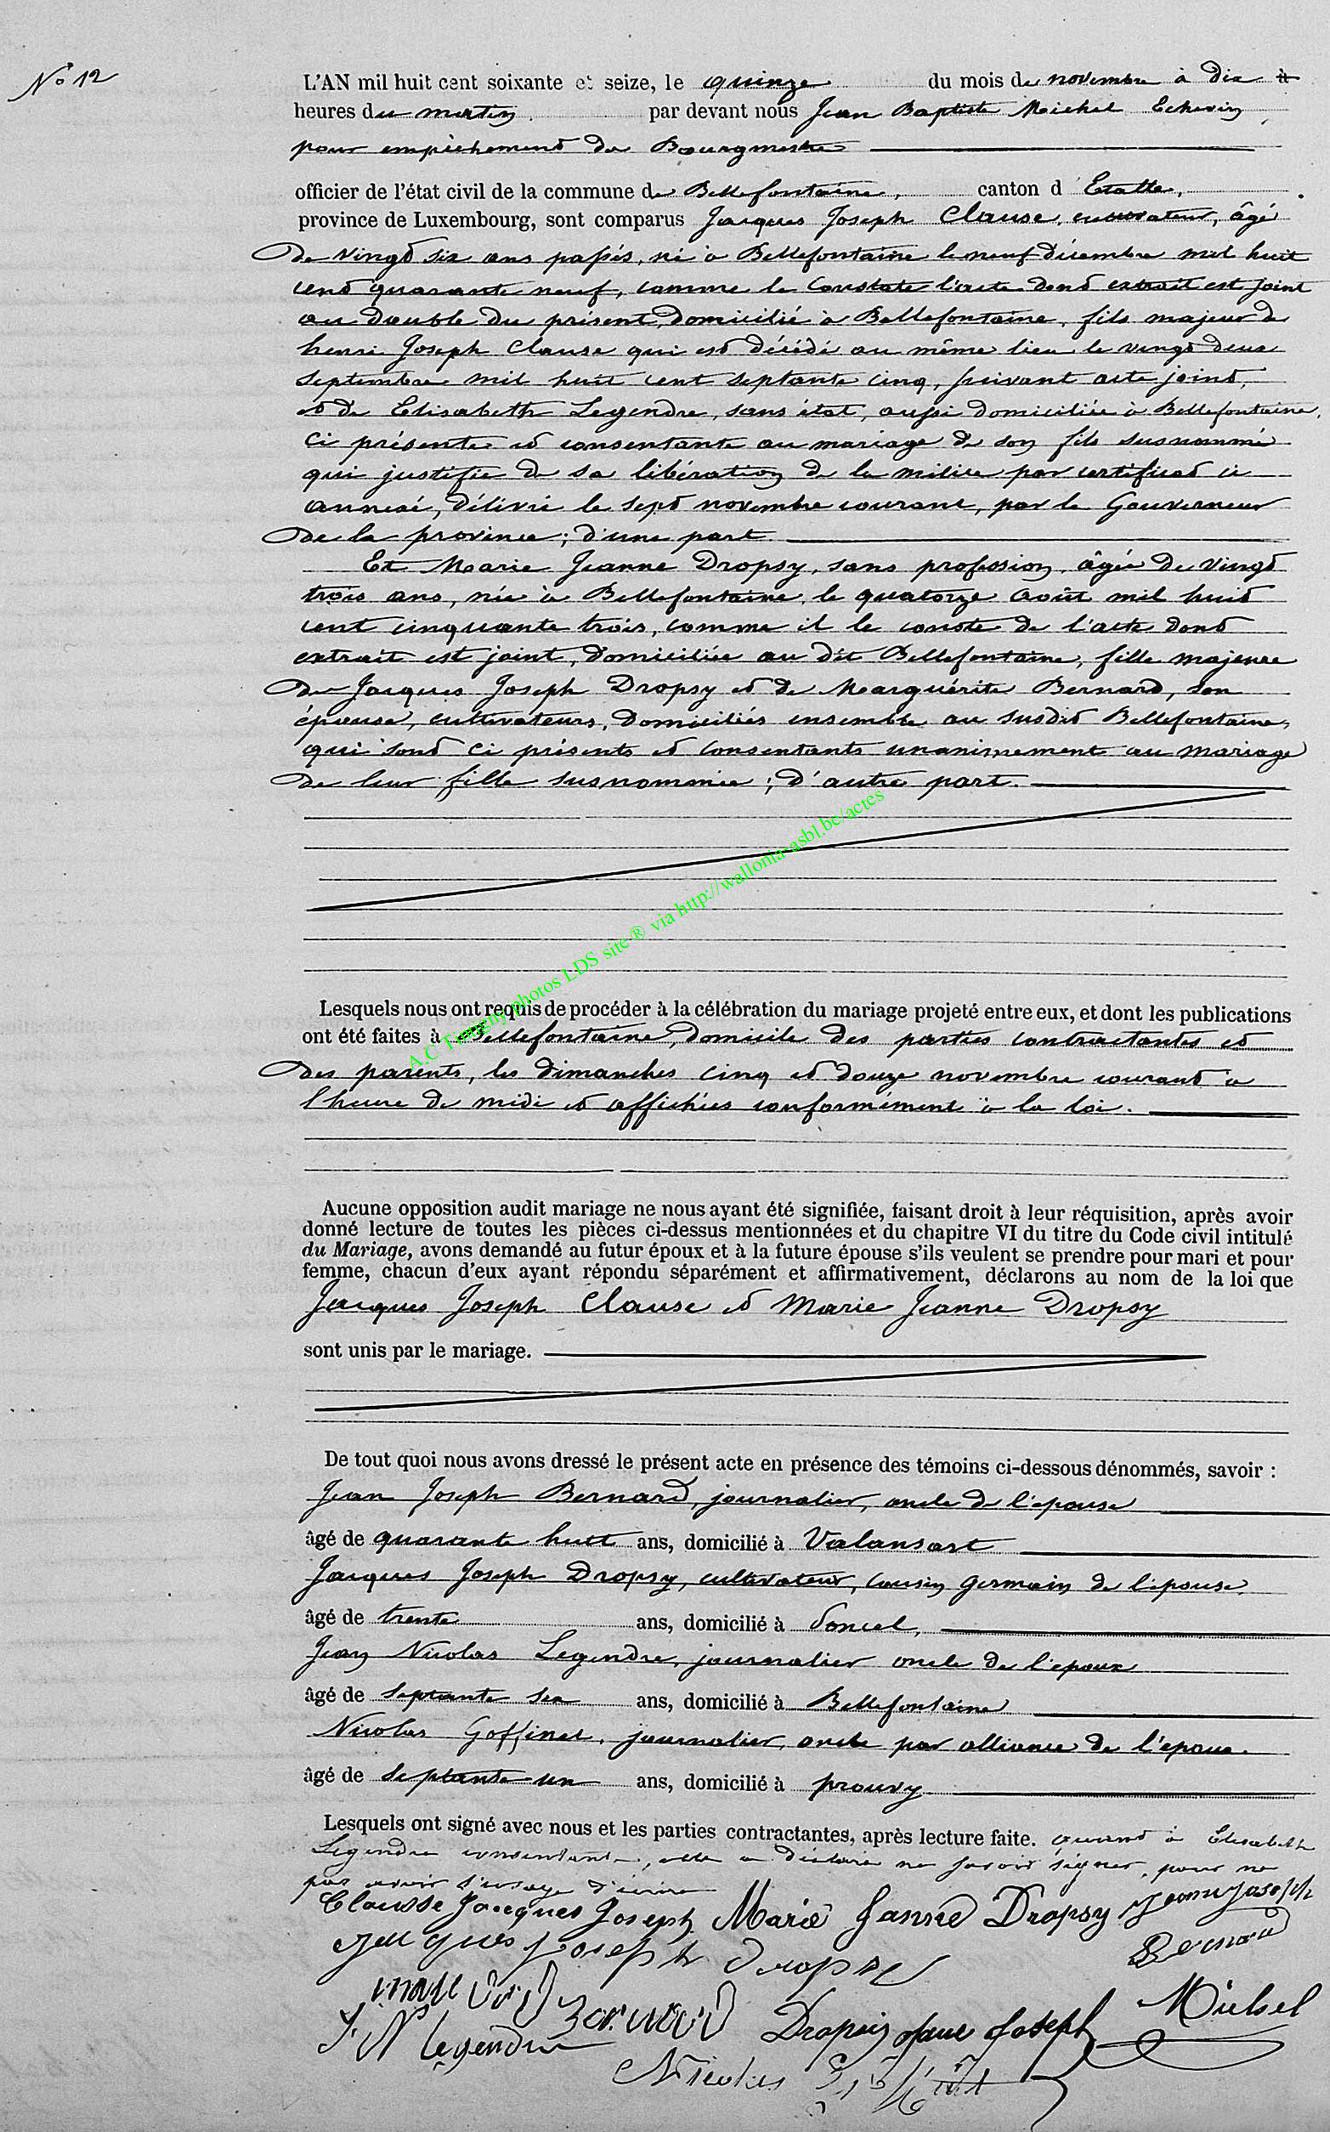 N° 12
L'AN mil huit cent soixante et seize, le quinze du mois de novembre à dix à
heures du matin par devant nous Jean Baptiste Michel Echevin
pour empêchement du Bourgmestre
officier de l'état civil de la commune de Bellefontaine, canton d'Etalle,
province de Luxembourg, sont comparus Jacques Joseph Clause, cultivateur, âgé
de vingt six ans passés, né à Bellefontaine le neuf décembre mil huit
cent quarante neuf, comme le constate l'acte dont extrait est joint
au double du présent, domicilié à Bellefontaine, fils majeur de
henri Joseph Clause qui est décédé au même lieu le vingt deux
septembre mil huit cent septante cinq, suivant acte joint,
et de Elisabeth Legendre, sans état, aussi domiciliée à Bellefontaine,
ci présente et consentante au mariage de son fils susnommé
qui justifie de sa libération de la milice par certificat ci
annexé, délivré le sept novembre courant, par le Gouverneur
de la province ; d'une part.
Et Marie Jeanne Dropsy, sans profession, âgée de vingt
trois ans, née à Bellefontaine, le quatorze août mil huit
cent cinquante trois, comme il le conste de l'acte dont
extrait est joint, domiciliée au dit Bellefontaine, fille majeure
de Jacques Joseph Dropsy et de Marguérite Bernard, son
épouse, cultivateurs, domiciliés ensemble au susdit Bellefontaine,
qui sont ci présents et consentants unanimement au mariage
de leur fille susnommée ; d'autre part.
A.C Tintigny photos LDS site ® via http://wallonia-asbl.be/actes
Lesquels nous ont requis de procéder à la célébration du mariage projeté entre eux, et dont les publications
ont été faites à Bellefontaine, domicile des parties contractantes et
des parents, les dimanches cinq et douze novembre courant à
l'heure de midi et affichées conformément à la loi.
Aucune opposition audit mariage ne nous ayant été signifiée, faisant droit à leur réquisition, après avoir
donné lecture de toutes les pièces ci-dessus mentionnées et du chapitre VI du titre du Code civil intitulé
du Mariage, avons demandé au futur époux et à la future épouse s'ils veulent se prendre pour mari et pour
femme, chacun d'eux ayant répondu séparément et affirmativement, déclarons au nom de la loi que
Jacques Joseph Clause et Marie Jeanne Dropsy
sont unis par le mariage.
De tout quoi nous avons dressé le présent acte en présence des témoins ci-dessous dénommés, savoir :
Jean Joseph Bernard, journalier, oncle de l'épouse
âgé de quarante huit ans, domicilié à Valansart
Jacques Joseph Dropsy, cultivateur, cousin germain de l'épouse,
âgé de trente ans, domicilié à Poncel,
Jean Nicolas Legendre, journalier oncle de l'époux
âgé de septante six ans, domicilié à Bellefontaine
Nicolas Goffinet, journalier, oncle par alliance de l'époux.
âgé de septante-un ans, domicilié à prouvy
Lesquels ont signé avec nous et les parties contractantes, après lecture faite. quant à Elisabeth
Legendre consentante, elle a déclaré ne savoir signer, pour ne
pas avoir l'usage d'écrire
Clausse Jacques Joseph Marie Janne Dropsy Jean Joseph
Jacques Joseph Dropsy Bernard
Bernard Michel
J. N Legendre Dropsy Joseph
Nicolas